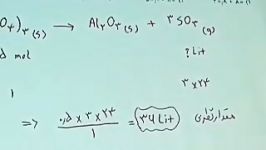 O₄)₃ (s) → Al₂O₃ (s) + ۳SO₃ (g)
۵ mol ? Lit
۱ ۳ × ۲۴
⇒ ۰٫۵ × ۳ × ۲۴ / ۱ = ۳۶ Lit مقدار نظری